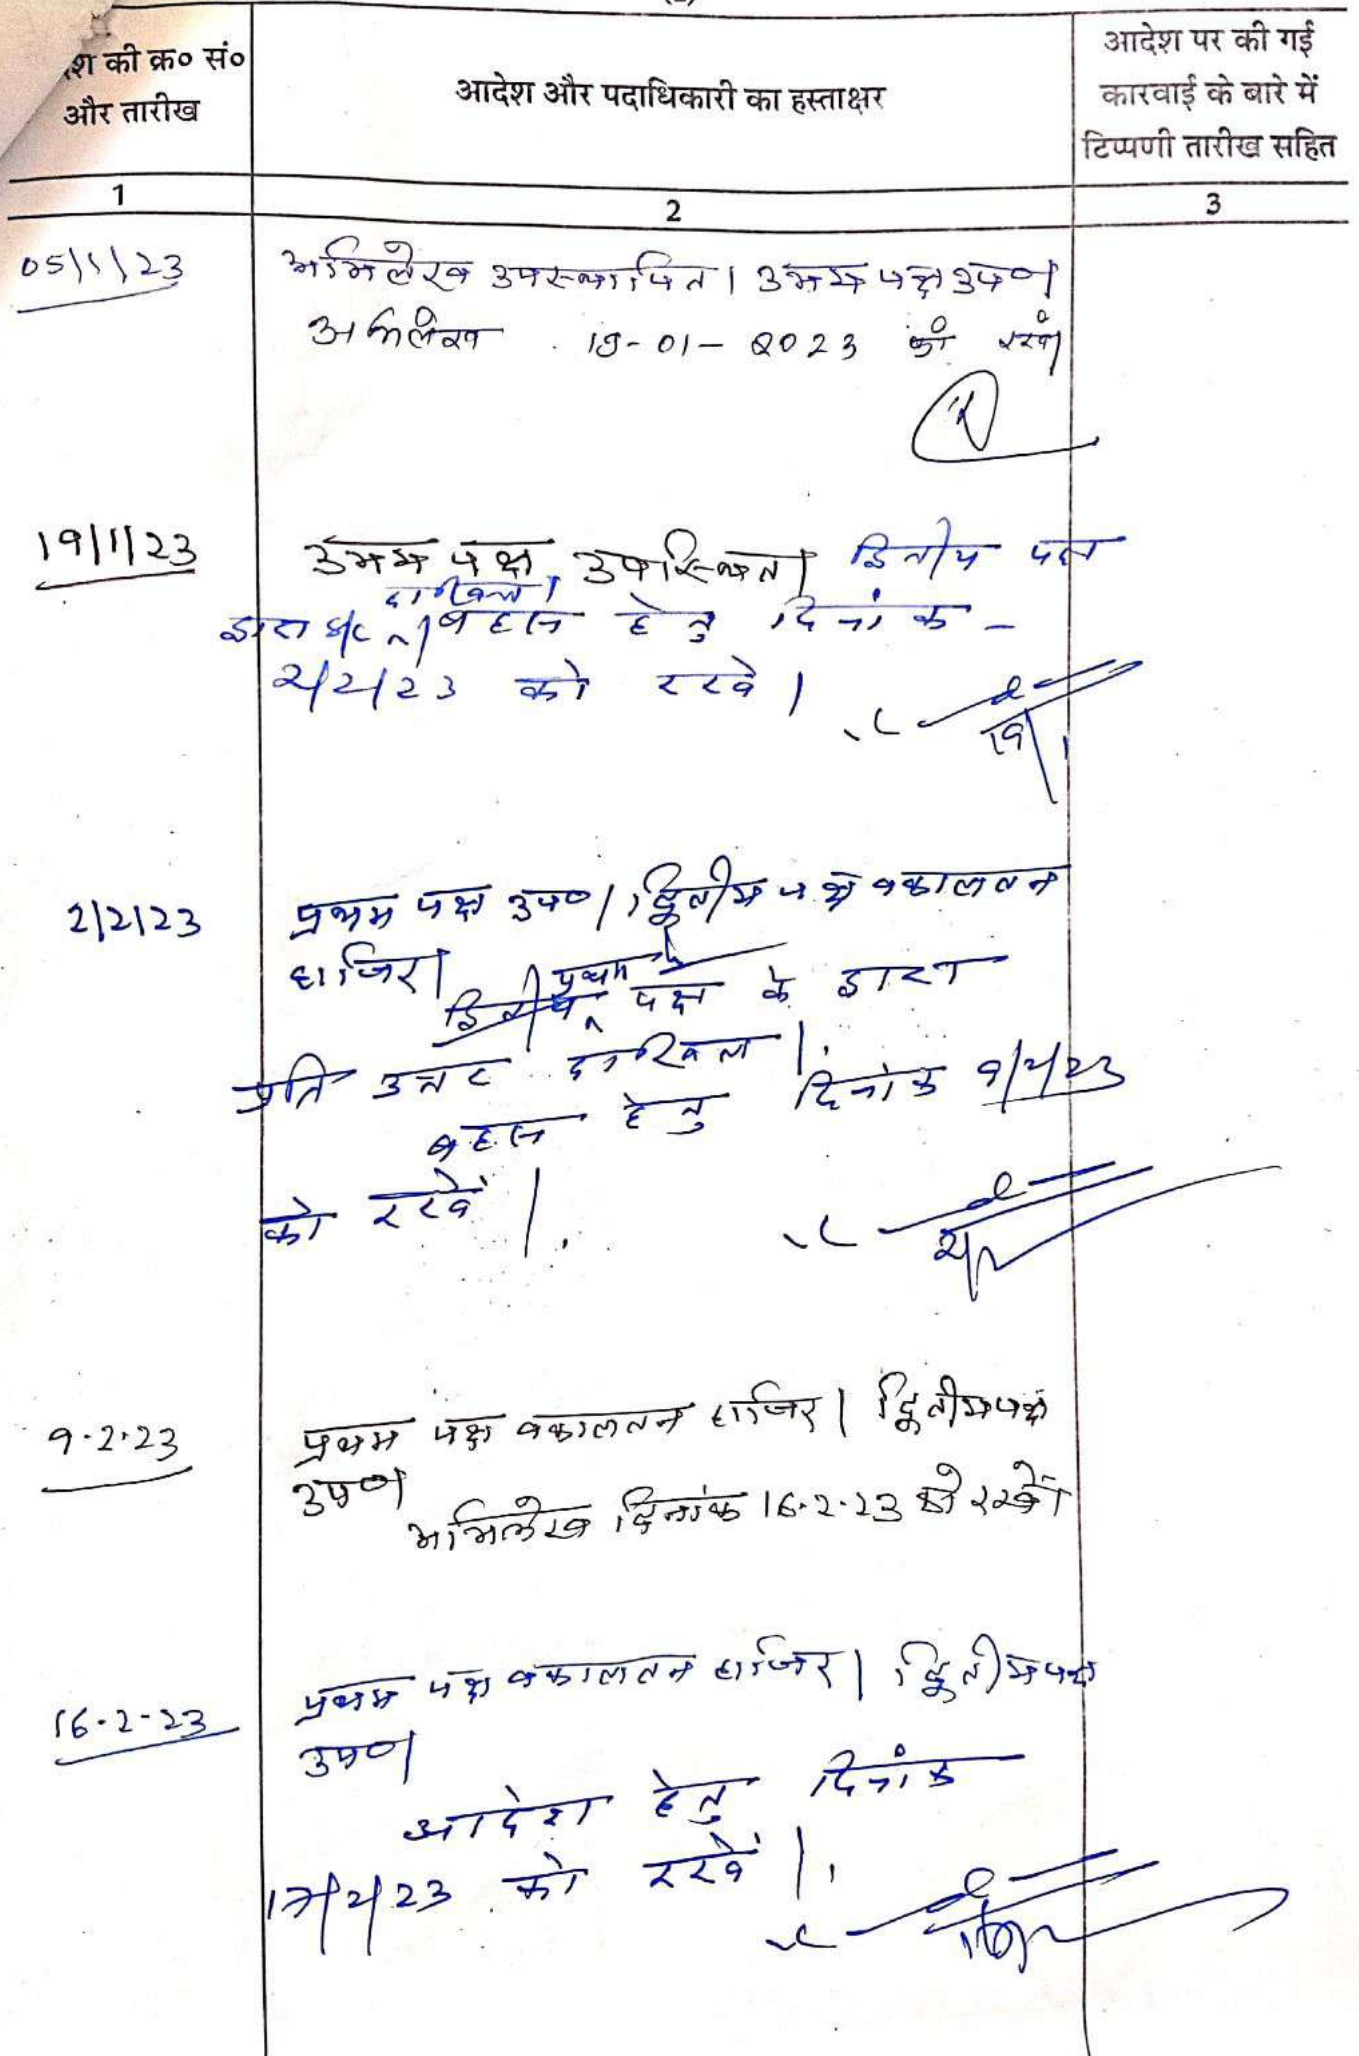 श की क्र० सं०
और तारीख
आदेश और पदाधिकारी का हस्ताक्षर
आदेश पर की गई
कारवाई के बारे में
टिप्पणी तारीख सहित
1
2
3
05/1/23
अभिलेख उपस्थापित। उभय पक्ष उप०।
अभिलेख 19-01-2023 को रखें।
19/1/23
उभय पक्ष उपस्थित। द्वितीय पक्ष
दाखिल।
द्वारा S/C बहस हेतु दिनांक -
2/2/23 को रखे।
19/1
2/2/23
प्रथम पक्ष उप०। द्वितीय पक्ष वकालतन
हाजिर।
प्रथम
द्वितीय पक्ष के द्वारा
प्रति उत्तर दाखिल।
बहस हेतु दिनांक 9/2/23
को रखें।
2/2
9.2.23
प्रथम पक्ष वकालतन हाजिर। द्वितीय पक्ष
उप०।
अभिलेख दिनांक 16.2.23 को रखें।
16-2-23
प्रथम पक्ष वकालतन हाजिर। द्वितीय पक्ष
उप०।
आदेश हेतु दिनांक
17/2/23 को रखें।
16/2